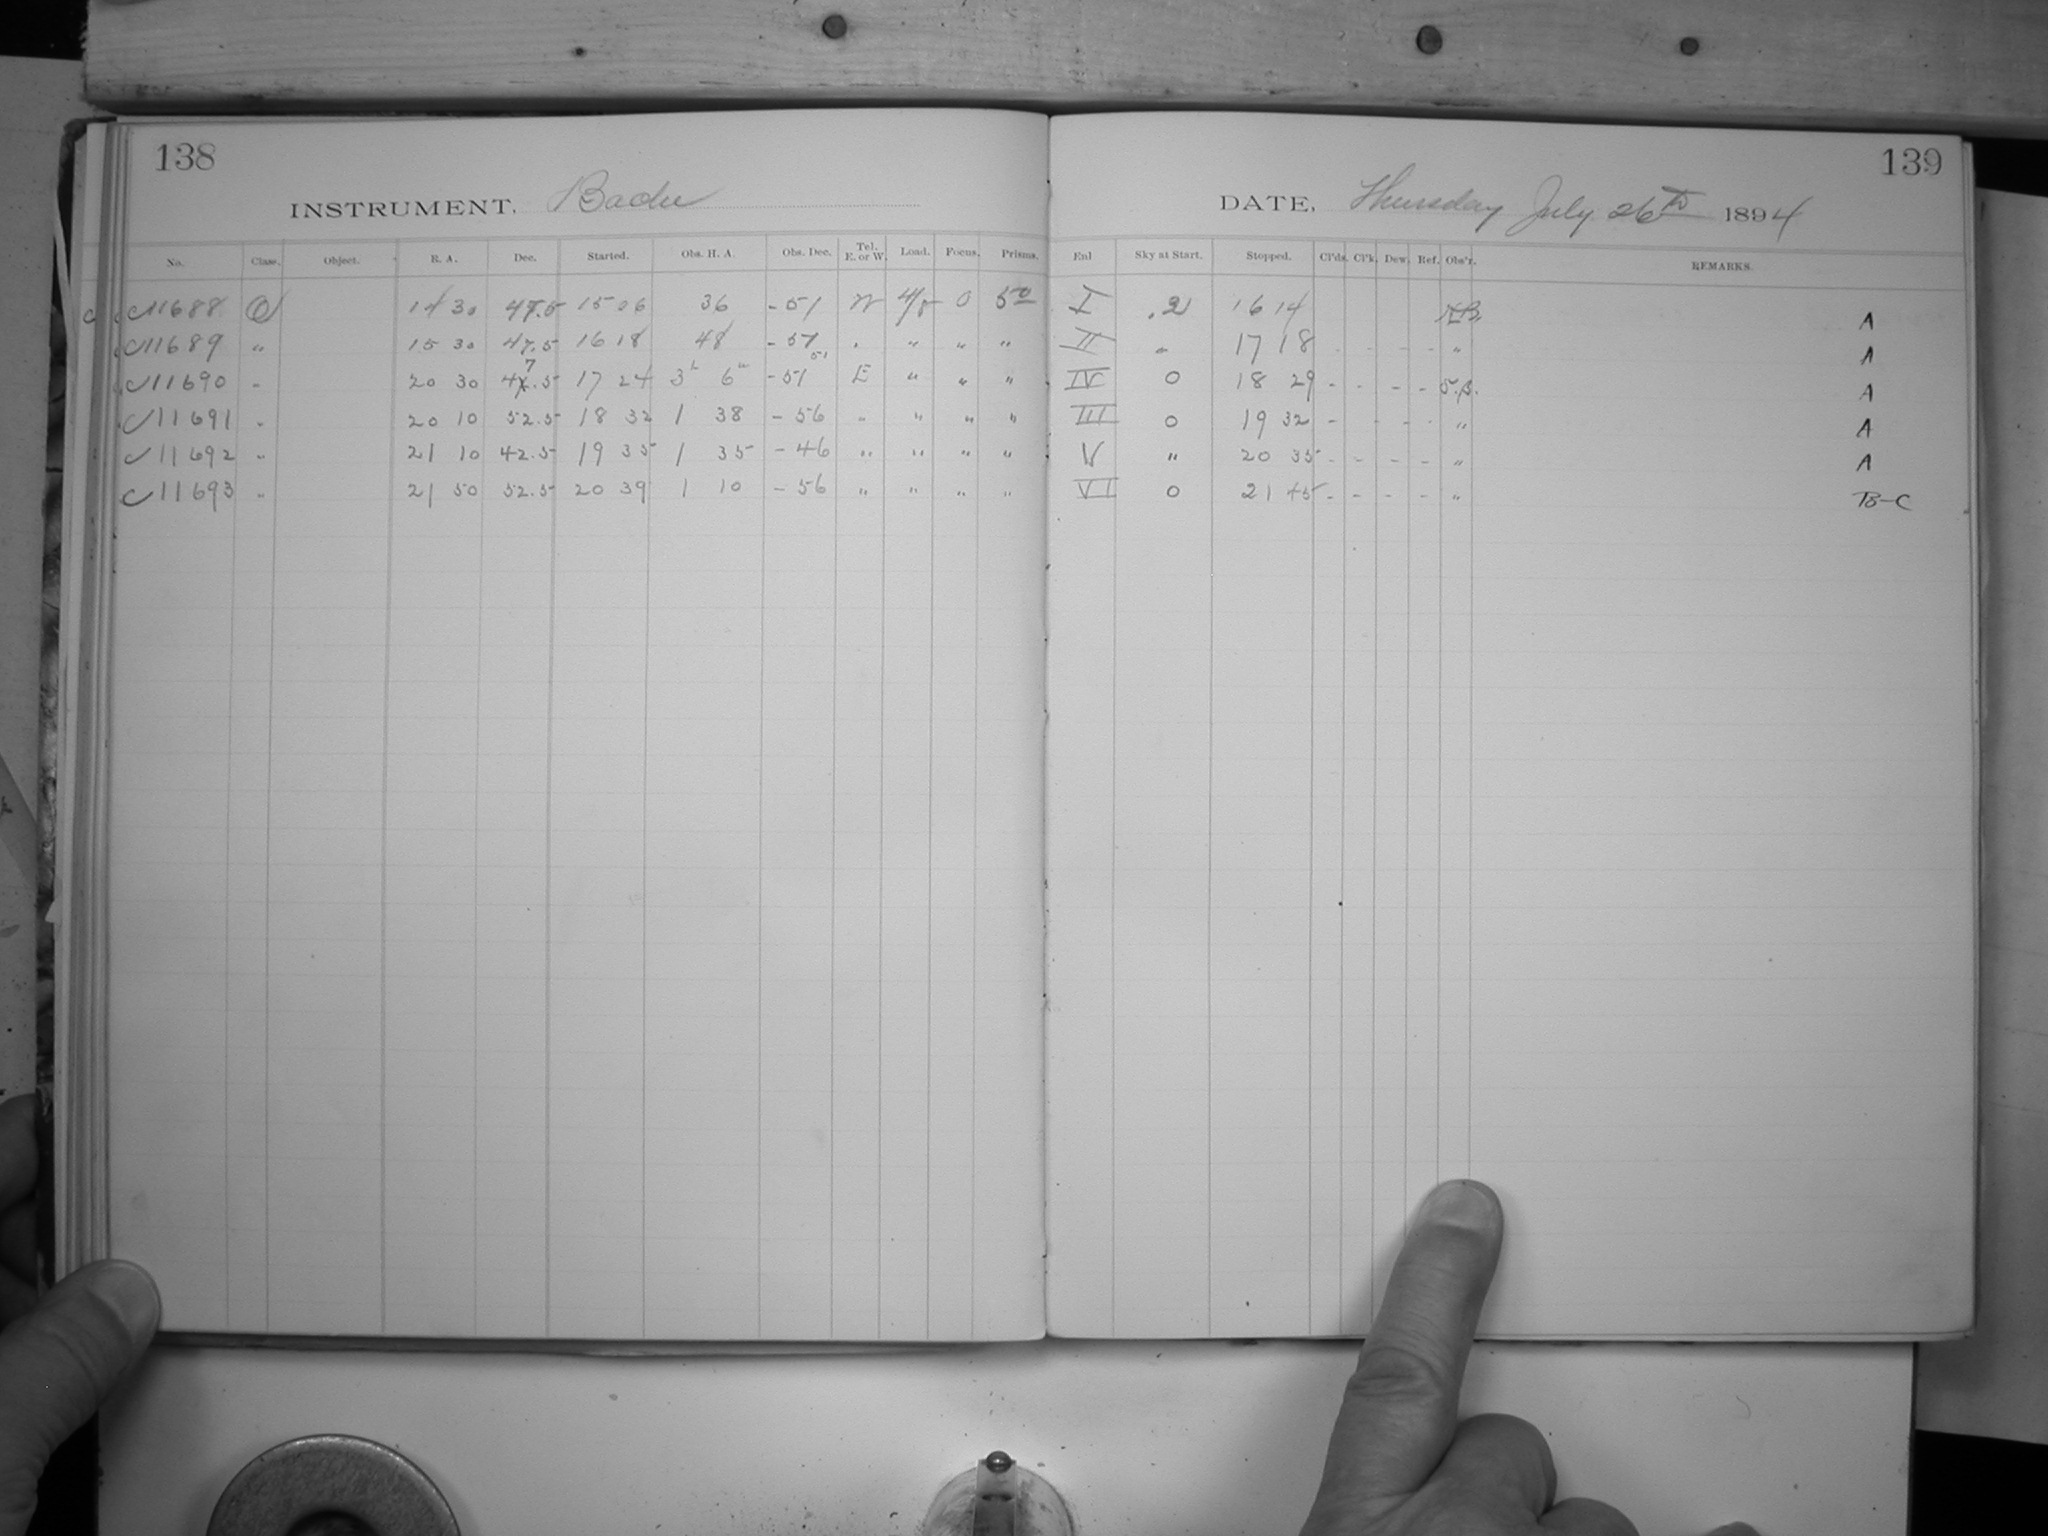 138
INSTRUMENT. Bache
No. Class. Object. R. A. Dec. Started. Obs. H. A. Obs. Dec. Tel. E. or W. Load. Focus. Prisms.
C11688 O 14 30 47.5 15 06 36 -51 W 4/5 0 50
C11689 " 15 30 47.5 16 18 48 -51 " " " "
C11690 " 20 30 47.5 17 24 3h 6m -51 E " " "
C11691 " 20 10 52.5 18 32 1 38 -56 " " " "
C11692 " 21 10 42.5 19 35 1 35 -46 " " " "
C11693 " 21 50 52.5 20 39 1 10 -56 " " " "
139
DATE, Thursday July 26th 1894
Enl Sky at Start. Stopped. Cl'ds. Cl'k. Dew. Ref. Obs'r. REMARKS.
I .2 16 14 A
II " 17 18 - - - - " A
IV 0 18 29 - - - - S.B. A
III 0 19 32 - - - - " A
V " 20 35 - - - - " A
VI 0 21 45 - - - - " B-C